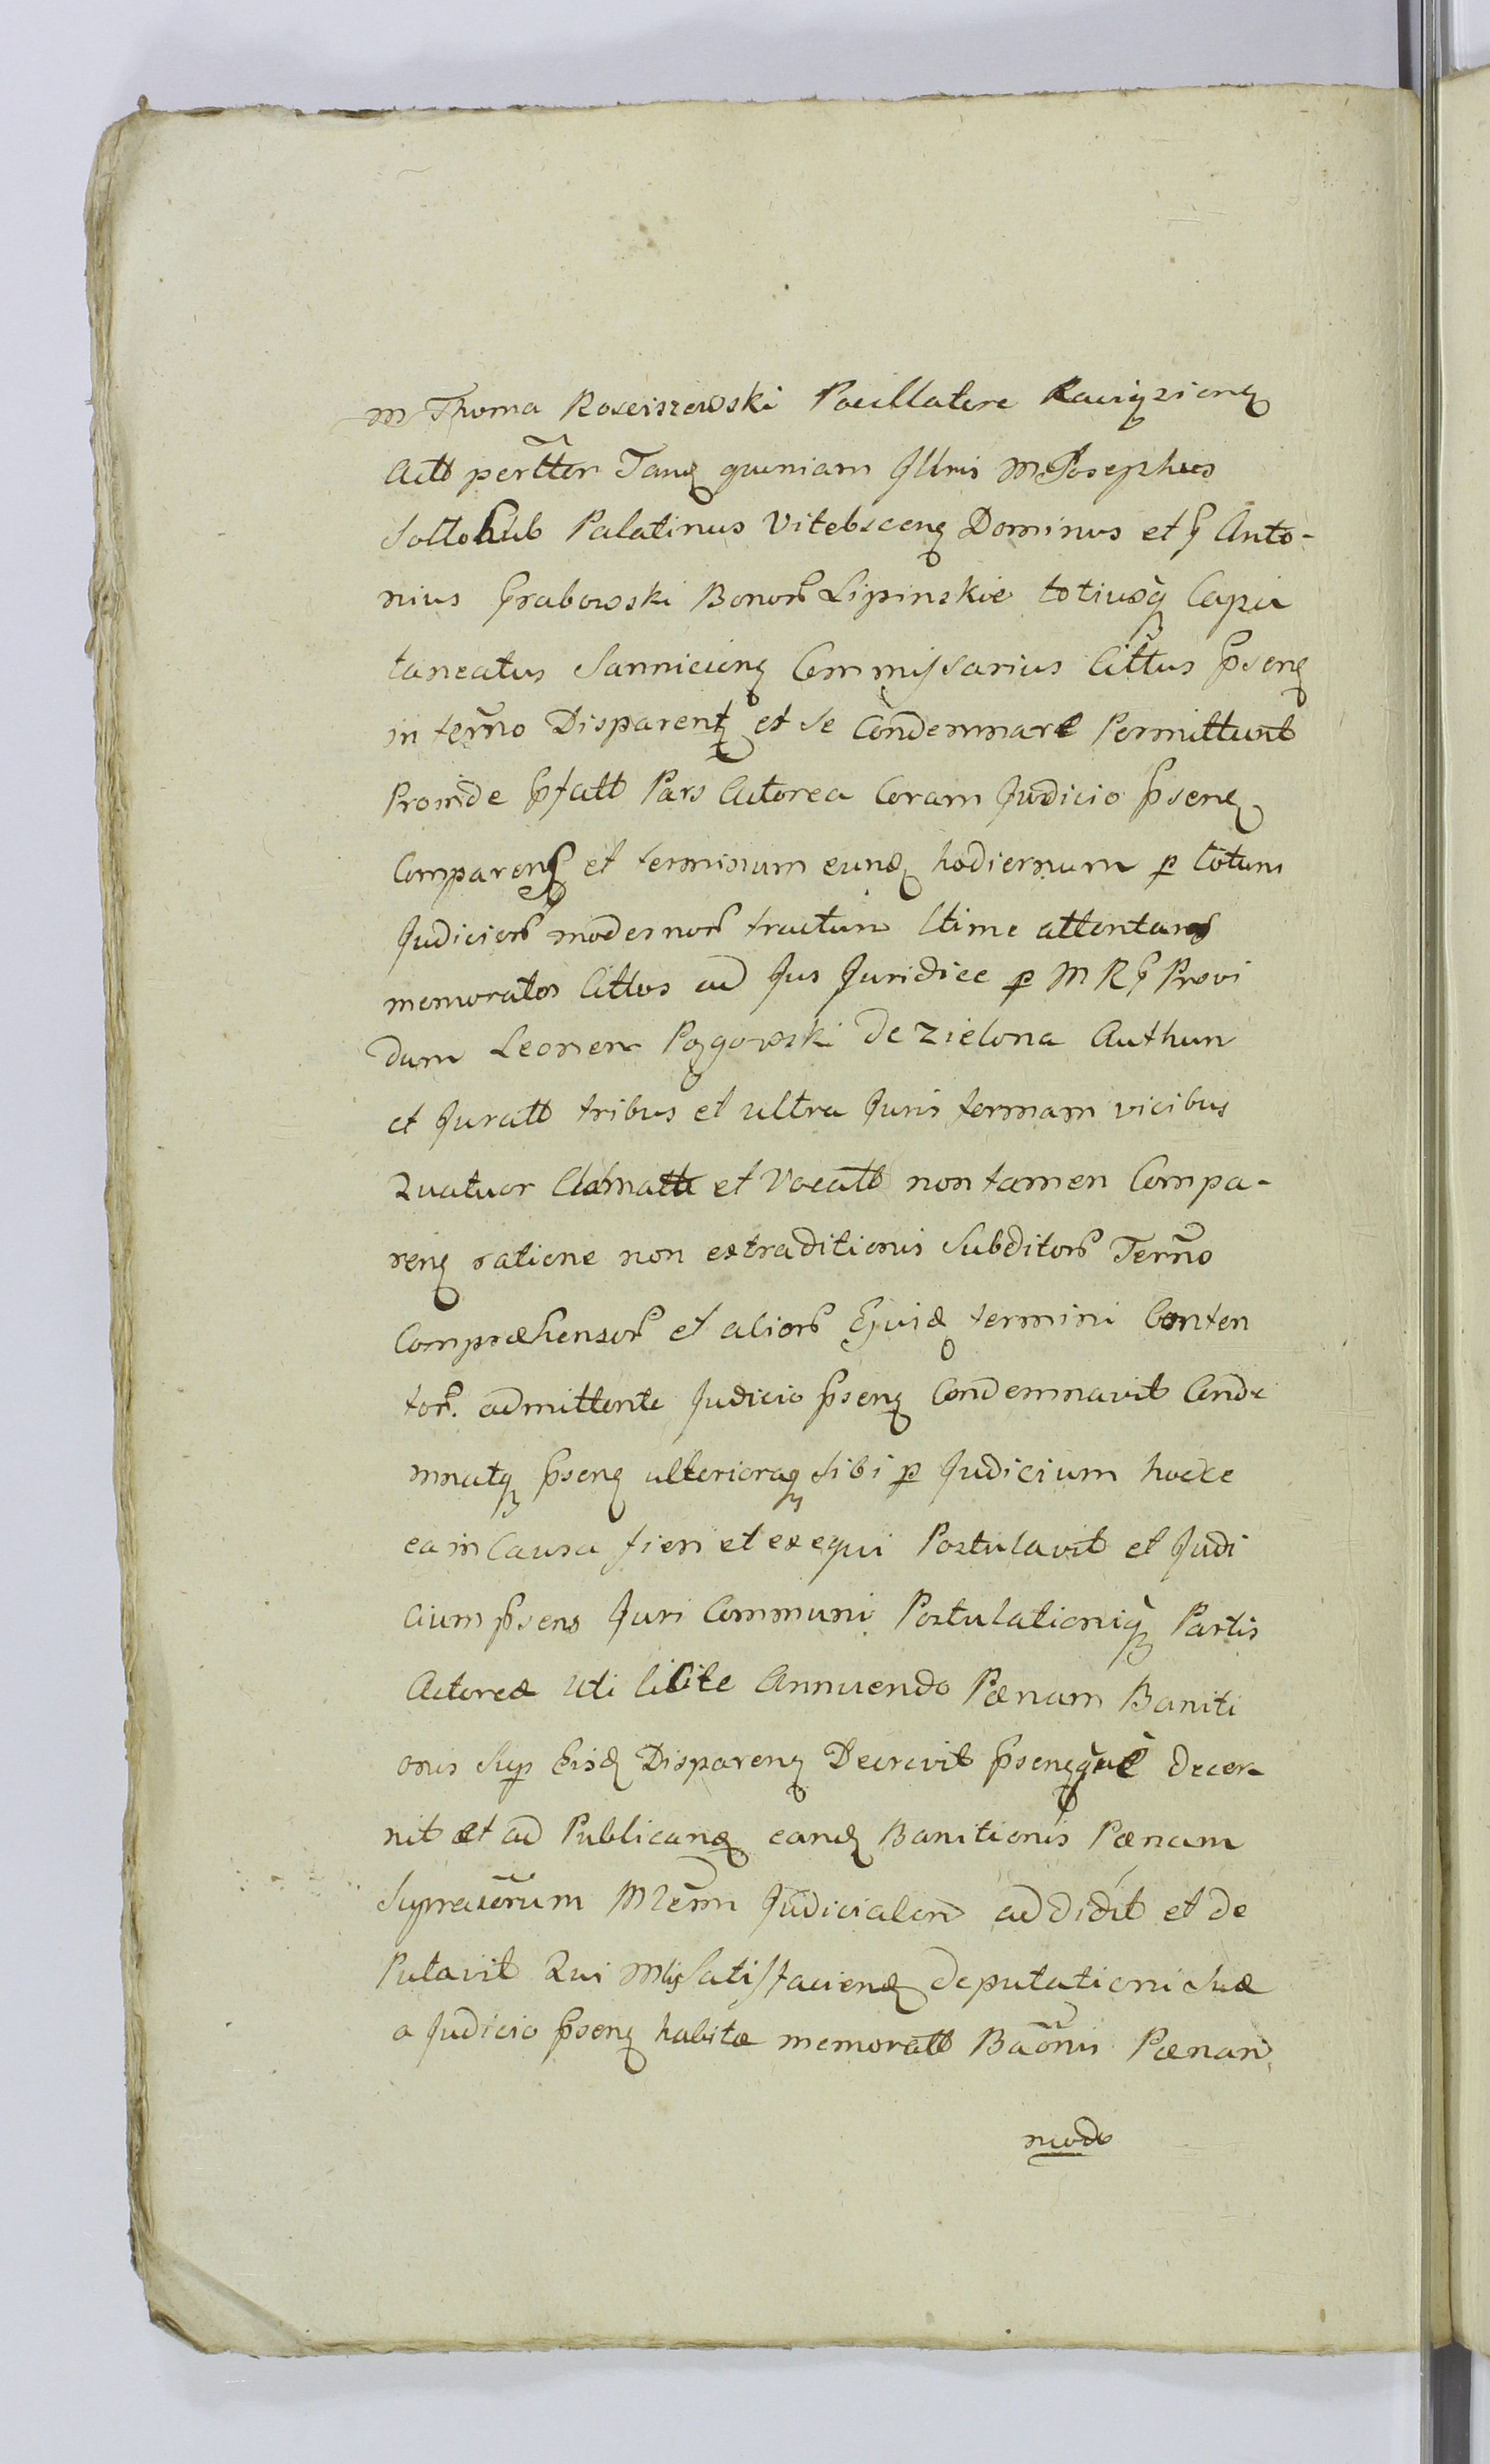 M Thoma Rosciszewski Pocillatore Raciązieng
Actt perttor Tanq quoniam Jllris M Josephus
Sollohub Palatinus Vitebsceng Dominus et G Anto-
nius Grabowski Bonor Lipinskie totiusq Capi
taneatus Sannicieng Commissarius Cittus pseng
in termo Disparent et se Condemnare Permittunt
Proinde pfatt Pars Actorea Coram Judicio pseng
Comparens et terminum eund hodiernum p totum
Judicior modernor tractum ltime attentans
memoratos Cittos ad Jus Juridice p M R G Provi
dum Leonem Pągowski de Zielona Authun
et Juratt tribus et ultra Juris formam vicibus
Quatuor Clamatt et Vocatt non tamen Compa-
reng ratione non extraditionis Subditor Termo
Compraehensor et alior Ejusd termini Conten
tor. admittente Judicio pseng Condemnavit Conde
mnatq pseng ulterioraq sibi p Judicium hocce
ea in Causa fieri et exequi Postulavit et Judi
cium psens Juri Communi Postulationiq Partis
Actoreae uti licite Annuendo Paenam Baniti
onis Sup Eisd Dispareng Decrevit psengque decer
nit et ad Publicand eand Banitionis Paenam
Suprascrum Mlrem Judicialem addidit et de
Putavit Qui Mlis Satisfaciend deputationi Suae
a Judicio pseng habitae memoratt Baonis Paenam
modo